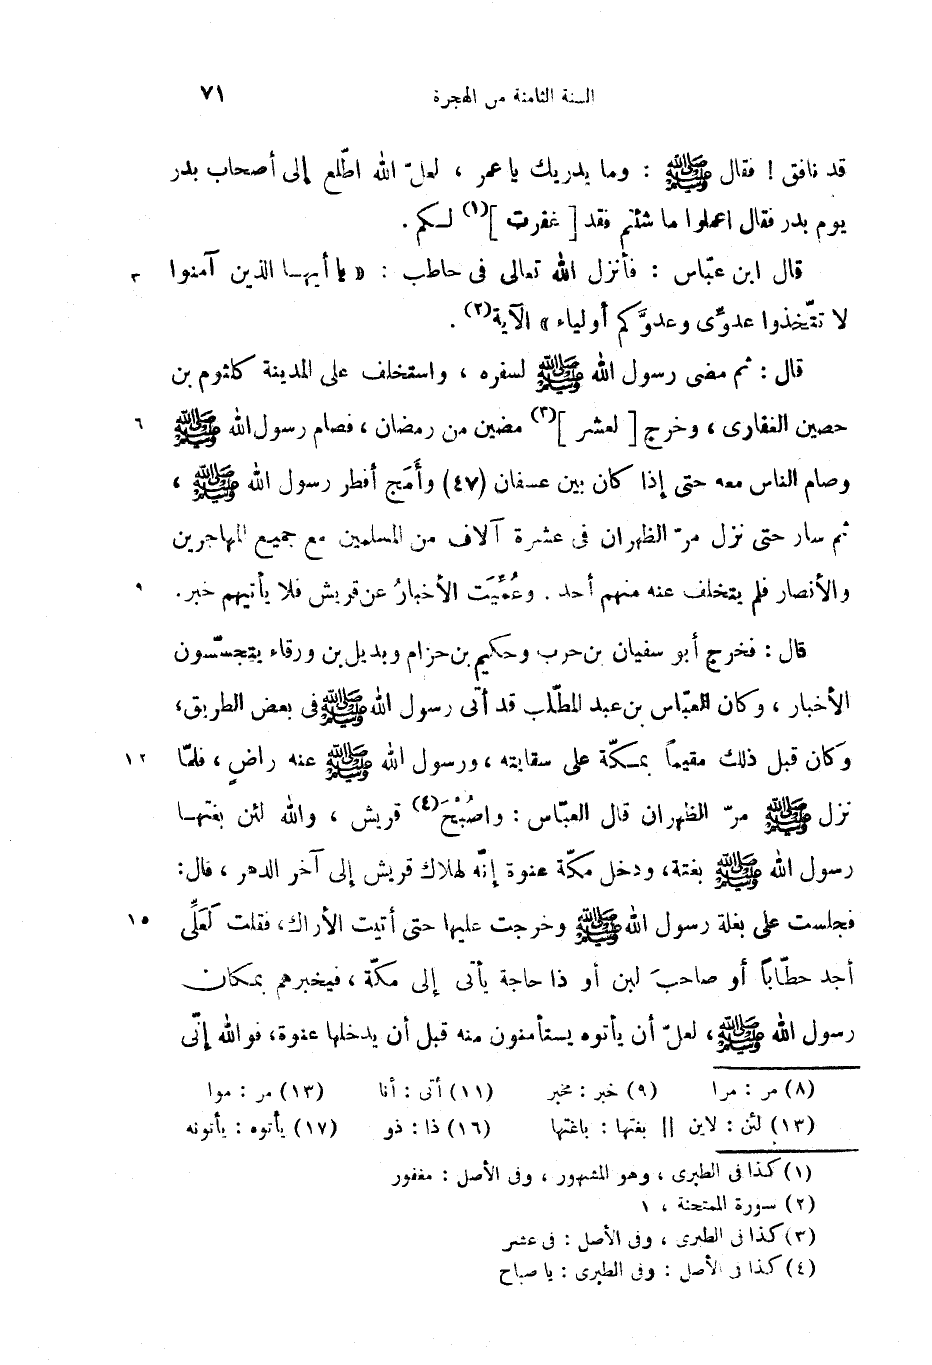 السنة الثامنة من الهجرة ٧١
قد نافق ! فقال ﷺ : وما يدريك يا عمر ، لعلّ الله اطّلع إلى أصحاب بدر
يوم بدر فقال اعملوا ما شئتم فقد [ غفرت ](١) لكم .
قال ابن عبّاس : فأنزل الله تعالى فى حاطب : « يا أيهـا الذين آمنوا ٣
لا تتّخذوا عدوّى وعدوّكم أولياء » الآية(٢) .
قال : ثم مضى رسول الله ﷺ لسفره ، واستخلف على المدينة كلثوم بن
حصين الغفارى ، وخرج [ لعشر ](٣) مضين من رمضان ، فصام رسول الله ﷺ ٦
وصام الناس معه حتى إذا كان بين عسفان (٤٧) وأَمَج أفطر رسول الله ﷺ ،
ثم سار حتى نزل مرّ الظهران فى عشرة آلاف من المسلمين مع جميع المهاجرين
والأنصار فلم يتخلف عنه منهم أحد . وعُمِّيَت الأخبارُ عن قريش فلا يأتيهم خبر. ٩
قال : فخرج أبو سفيان بن حرب وحكيم بن حزام وبديل بن ورقاء يتجسّسون
الأخبار ، وكان العبّاس بن عبد المطّلب قد أتى رسول الله ﷺ فى بعض الطريق،
وكان قبل ذلك مقيماً بمـكّة على سقايته ، ورسول الله ﷺ عنه راضٍ ، فلمّا ١٢
نزل ﷺ مرّ الظهران قال العبّاس : واصُبْحَ(٤) قريش ، والله لئن بغتهـا
رسول الله ﷺ بغتة، ودخل مكّة عنوة إنّه لهلاك قريش إلى آخر الدهر ، قال:
فجلست على بغلة رسول الله ﷺ وخرجت عليها حتى أتيت الأراك، فقلت لَعَلِّى ١٥
أجد حطّاباً أو صاحبَ لبن أو ذا حاجة يأتى إلى مكّة ، فيخبرهم بمـكان
رسول الله ﷺ، لعلّ أن يأتوه يستأمنون منه قبل أن يدخلها عنوة، فوالله إنّى
(٨) مر : مرا (٩) خبر : مخبر (١١) أتى : أتا (١٣) مر : موا
(١٣) لئن : لاين || بغتها : باغتها (١٦) ذا : ذو (١٧) يأتوه : يأتونه
(١) كذا فى الطبرى ، وهو المشهور ، وفى الأصل : مغفور
(٢) سورة الممتحنة ، ١
(٣) كذا فى الطبرى ، وفى الأصل : فى عشر
(٤) كذا فى الأصل : وفى الطبرى : يا صباح